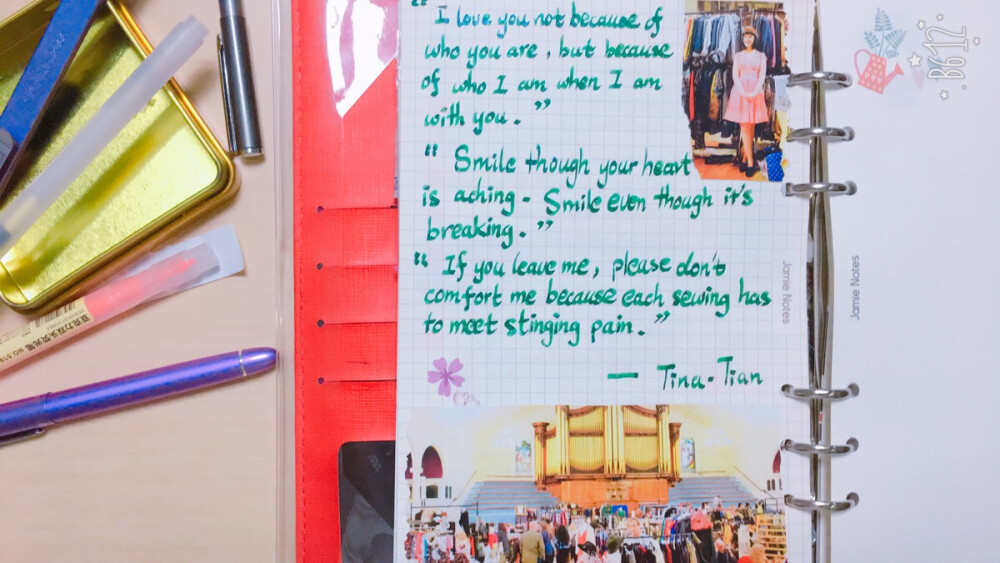 "I love you not because of
who you are, but because
of who I am when I am
with you."
"Smile though your heart
is aching - Smile even though it's
breaking."
"If you leave me, please don't
comfort me because each sewing has
to meet stinging pain."
— Tina-Tian
Jamie Notes
Jamie Notes
B612